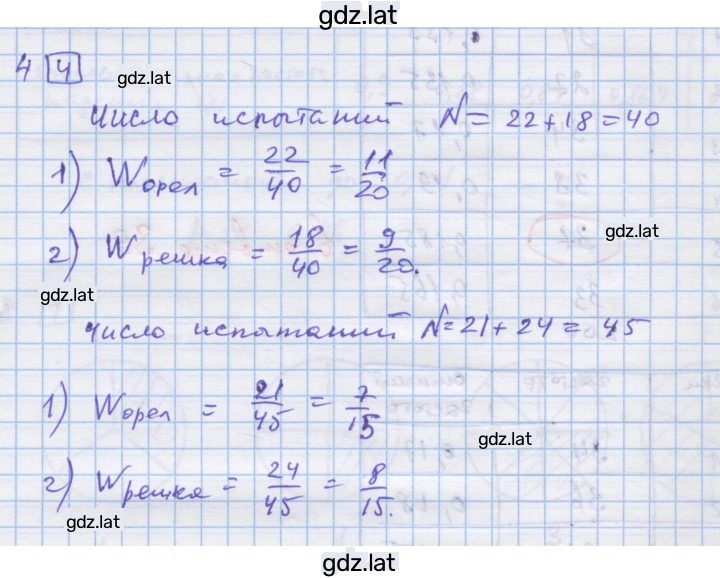 gdz.lat
4 4
gdz.lat
Число испытаний N = 22 + 18 = 40
1) Wорел = 22/40 = 11/20
gdz.lat
2) Wрешка = 18/40 = 9/20.
gdz.lat
Число испытаний N = 21 + 24 = 45
1) Wорел = 21/45 = 7/15
gdz.lat
2) Wрешка = 24/45 = 8/15.
gdz.lat
gdz.lat